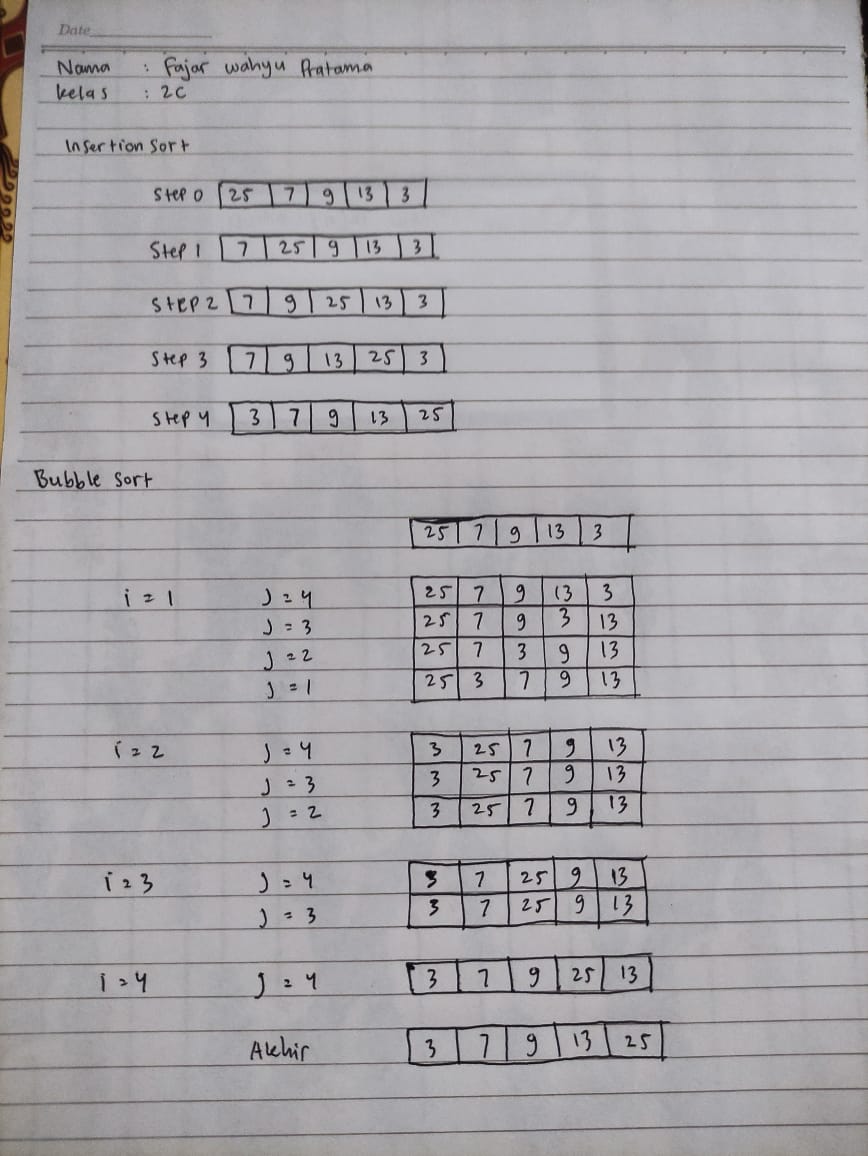 Date
Nama : Fajar wahyu Pratama
kelas : 2C
Insertion Sort
Step 0 25 7 9 13 3
Step 1 7 25 9 13 3
Step 2 7 9 25 13 3
Step 3 7 9 13 25 3
Step 4 3 7 9 13 25
Bubble Sort
25 7 9 13 3
i = 1 J = 4 25 7 9 13 3
J = 3 25 7 9 3 13
J = 2 25 7 3 9 13
J = 1 25 3 7 9 13
i = 2 J = 4 3 25 7 9 13
J = 3 3 25 7 9 13
J = 2 3 25 7 9 13
i = 3 J = 4 3 7 25 9 13
J = 3 3 7 25 9 13
i = 4 J = 4 3 7 9 25 13
Akhir 3 7 9 13 25